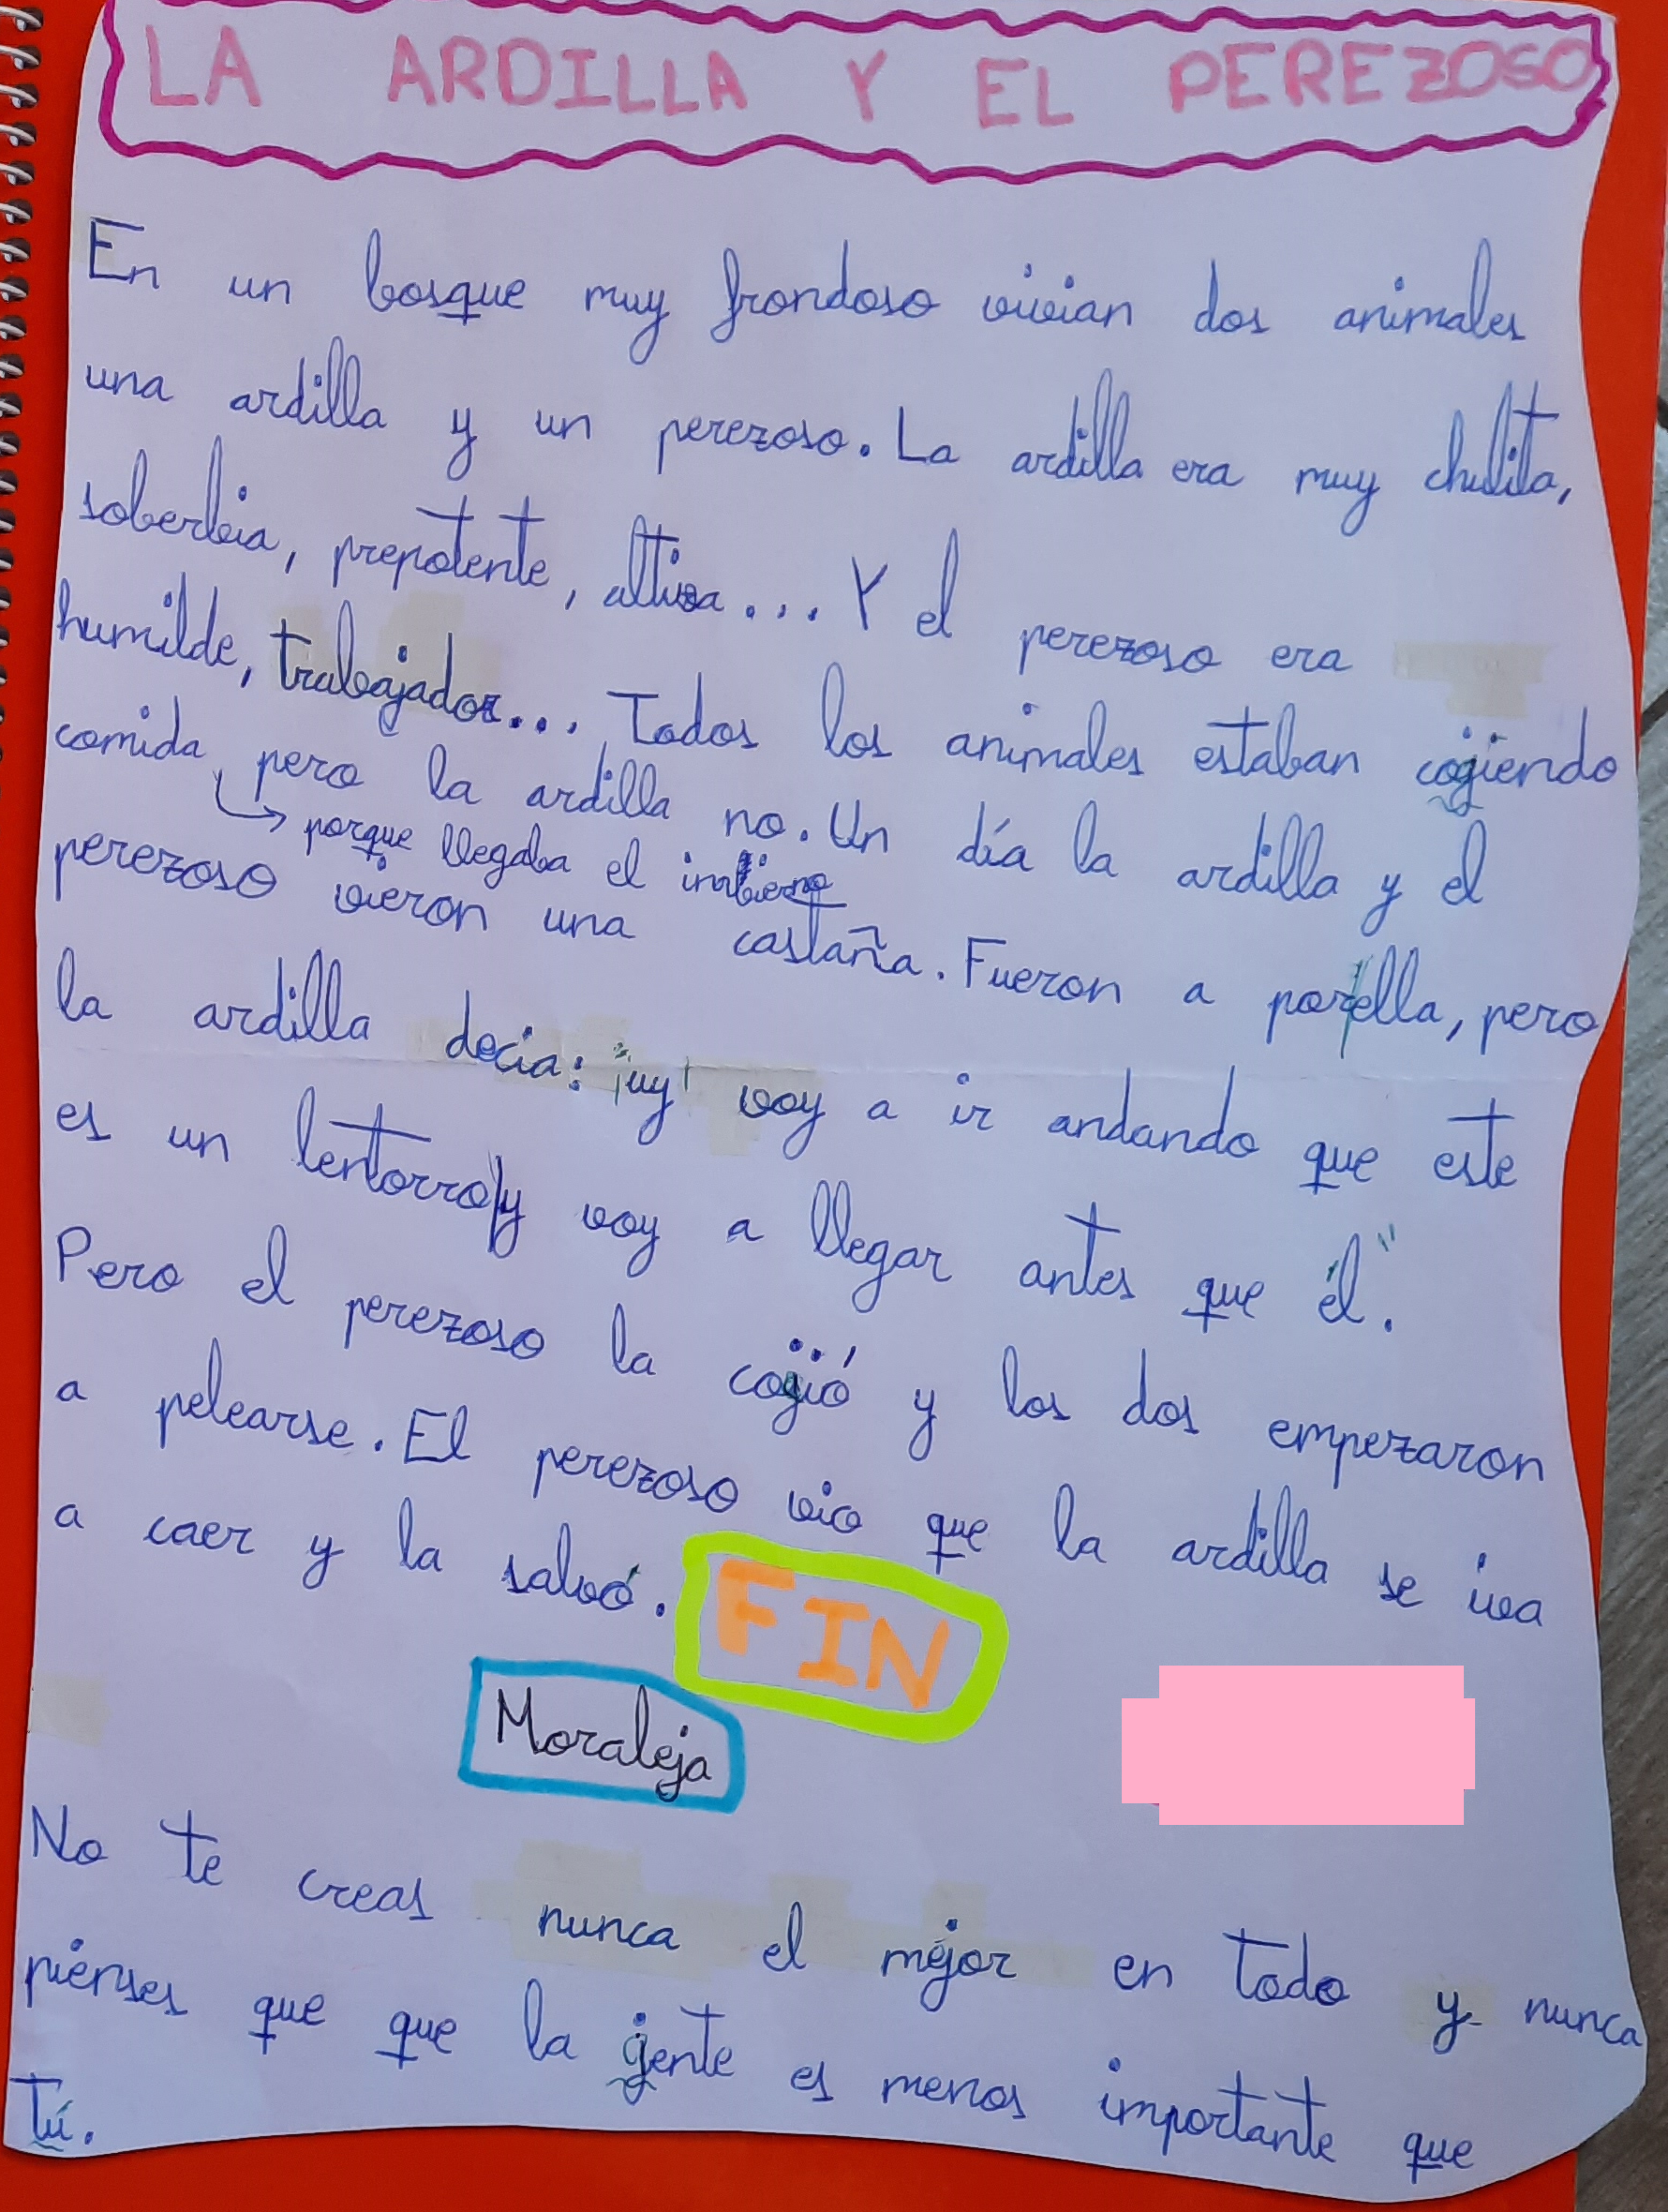 LA ARDILLA Y EL PEREZOSO
En un bosque muy frondoso vivian dos animales
una ardilla y un perezoso. La ardilla era muy chulita,
soberbia, prepotente, altiva... Y el perezoso era
humilde, trabajador... Todos los animales estaban cogiendo
comida, pero la ardilla no. Un día la ardilla y el
porque llegaba el invierno
perezoso vieron una castaña. Fueron a por ella, pero
la ardilla decia: "¡uy! voy a ir andando que este
es un lentorro y voy a llegar antes que él."
Pero el perezoso la cogió y los dos empezaron
a pelearse. El perezoso vio que la ardilla se iva
a caer y la salvó. FIN
Moraleja
No te creas nunca el mejor en todo y nunca
pienses que que la gente es menos importante que
tú.